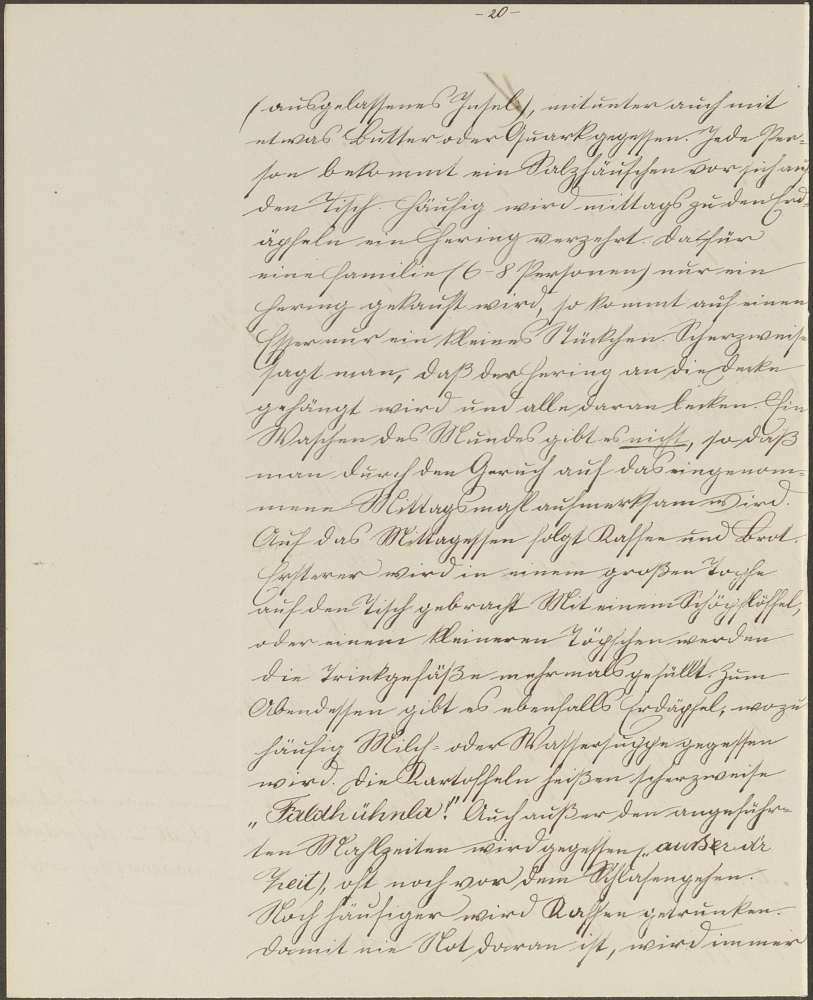 - 20 -
(ausgelassenes Inselt), mitunter auch mit
etwas Butter oder Quark gegessen. Jede Per-
son bekommt ein Salzhäufchen vor sich auf
den Tisch. Häufig wird mittags zu den Erd-
äpfeln ein Hering verzehrt. Da für
eine Familie (6-8 Personen) nur ein
Hering gekauft wird, so kommt auf einen
Esser nur ein kleines Stückchen. Scherzweise
sagt man, daß der Hering an die Decke
gehängt wird und alle daran lecken. Ein
Waschen des Mundes gibt es nicht, so daß
man durch den Geruch auf das eingenom-
mene Mittagsmahl aufmerksam wird.
Auf das Mittagessen folgt Kaffee und Brot.
Ersterer wird in einem großen Topfe
auf den Tisch gebracht. Mit einem Schöpflöffel,
oder einem kleineren Töpfchen werden
die Trinkgefäße mehrmals gefüllt. Zum
Abendessen gibt es ebenfalls Erdäpfel, wozu
häufig Milch- oder Wassersuppe gegessen
wird. Die Kartoffeln heißen scherzweise
„Faldhühnla". Auch außer den angeführ-
ten Mahlzeiten wird gegessen („außer dr
Zeit), oft noch vor dem Schlafengehen.
Noch häufiger wird Kaffee getrunken.
Damit nie Not daran ist, wird immer